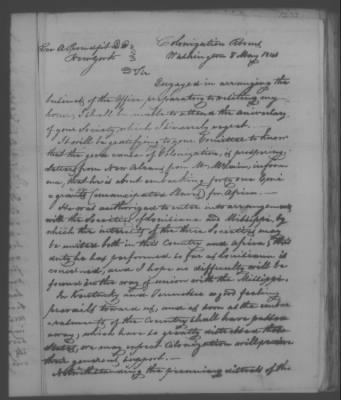 Rev A Proudfit D.D.
New York
Colonization Rooms
Washington 8 May 1841
D Sir
Engaged in arranging the
business of the Office preparatory to visiting my
home, I shall be unable to attend the anniversary
of your Society, which I sincerely regret.
It will be gratifying to your Committee to know
that the good cause of Colonization, is prospering.
Letters from New Orleans, from Mr McLain, inform
me, that he is about embarking forty one Emi
grants (emancipated slaves) for Africa.
He was authorized to enter into arrangements
with the Societies of Louisiana and Mississippi, by
which the interests of the three Societies may
be united both in this Country and Africa; this
duty he has performed so far as Louisiana is
concerned, and I hope no difficulty will be
found in the way of union with the Mississippi.
In Kentucky and Tennessee a good feeling
prevails toward us, and as soon as the embar
rassments of the Country shall have passed
away, which have so greatly distressed those
States, we may expect Colonization will receive
their generous support.
Notwithstanding the pecuniary distress of the